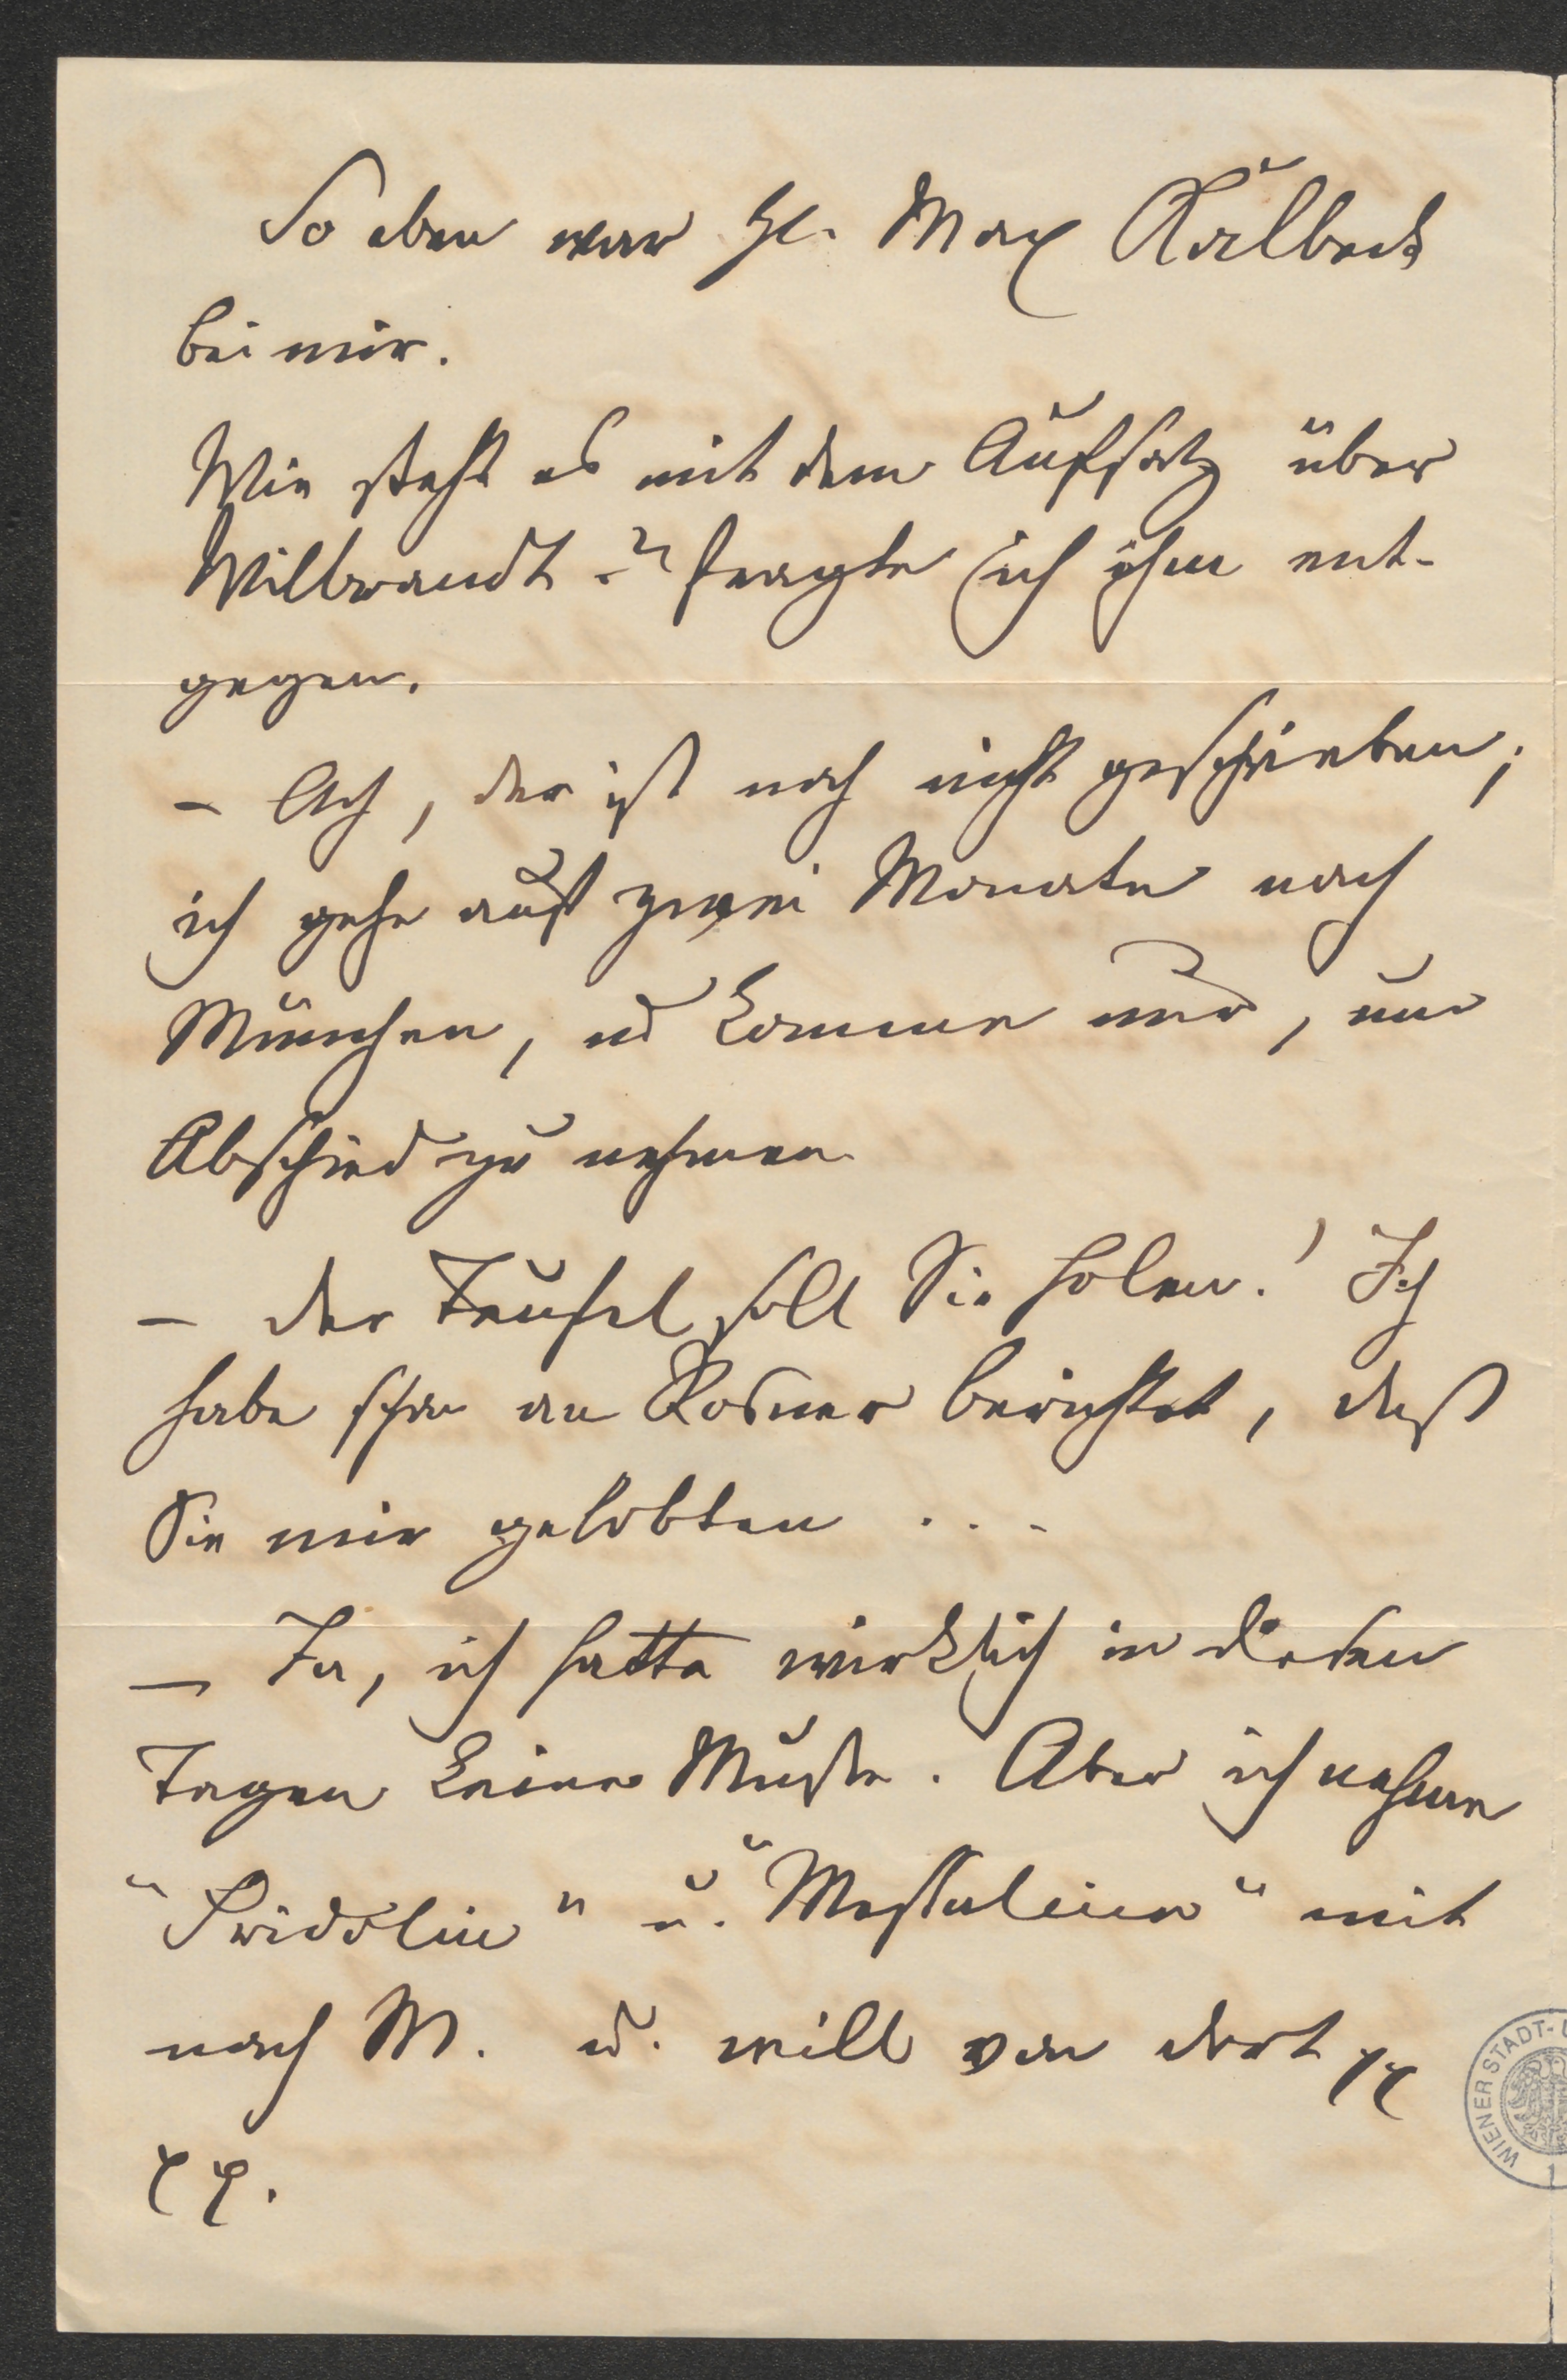 So eben war H. Max Kalbeck
bei mir.
Wie steht es mit dem Aufsatz über
Wilbrandt? fragte ich ihm ent-
gegen.
– Ach, der ist noch nicht geschrieben;
ich gehe auf zwei Monate nach
München, und komme nur, um
Abschied zu nehmen.
– der Teufel soll Sie holen! Ich
habe schon an Rosner berichtet, daß
Sie mir gelobten ...
– Ja, ich hatte wirklich in diesen
Tagen keine Muße. Aber ich nehme
"Fridolin" u. "Messalina" mit
nach M. u. will von dort
WIENER STADT-